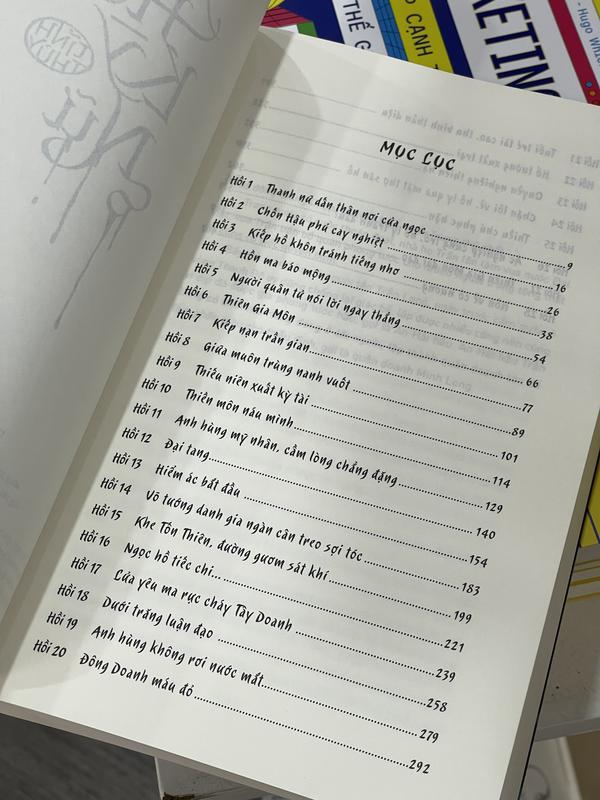 THẾ G
CẠNH T
KETING
- Hugo Whic
MỤC LỤC
Hồi 1 Thanh nữ dấn thân nơi cửa ngọc 9
Hồi 2 Chốn Hậu phủ cay nghiệt 16
Hồi 3 Kiếp hồ khôn tránh tiếng nhơ 26
Hồi 4 Hồn ma báo mộng 38
Hồi 5 Người quân tử nói lời ngay thẳng 54
Hồi 6 Thiên Gia Môn 66
Hồi 7 Kiếp nạn trần gian 77
Hồi 8 Giữa muôn trùng nanh vuốt 89
Hồi 9 Thiếu niên xuất kỳ tài 101
Hồi 10 Thiền môn náu mình 114
Hồi 11 Anh hùng mỹ nhân, cầm lòng chẳng đặng 129
Hồi 12 Đại tang 140
Hồi 13 Hiểm ác bắt đầu 154
Hồi 14 Võ tướng danh gia ngàn cân treo sợi tóc 183
Hồi 15 Khe Tồn Thiên, đường gươm sát khí 199
Hồi 16 Ngọc hồ tiếc chi... 221
Hồi 17 Lửa yêu ma rực cháy Tây Doanh 239
Hồi 18 Dưới trăng luận đạo 258
Hồi 19 Anh hùng không rơi nước mắt 279
Hồi 20 Đông Doanh máu đỏ 292